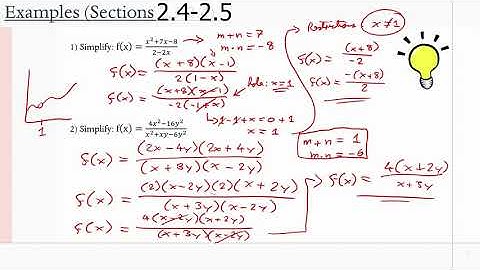 Examples (Sections 2.4-2.5
1) Simplify: f(x) = x²+7x-8 / 2-2x
m+n = 7
m·n = -8
f(x) = (x+8)(x-1) / 2(1-x)
f(x) = (x+8)(x-1) / -2(-1+x)
hole: x=1
-1+x = 0+1
x = 1
Restrictions x≠1
f(x) = (x+8) / -2
f(x) = -(x+8) / 2
1
2) Simplify: f(x) = 4x²-16y² / x²+xy-6y²
m+n = 1
m·n = -6
f(x) = (2x-4y)(2x+4y) / (x+3y)(x-2y)
f(x) = (2)(x-2y)(2)(x+2y) / (x+3y)(x-2y)
f(x) = 4(x-2y)(x+2y) / (x+3y)(x-2y)
f(x) = 4(x+2y) / x+3y